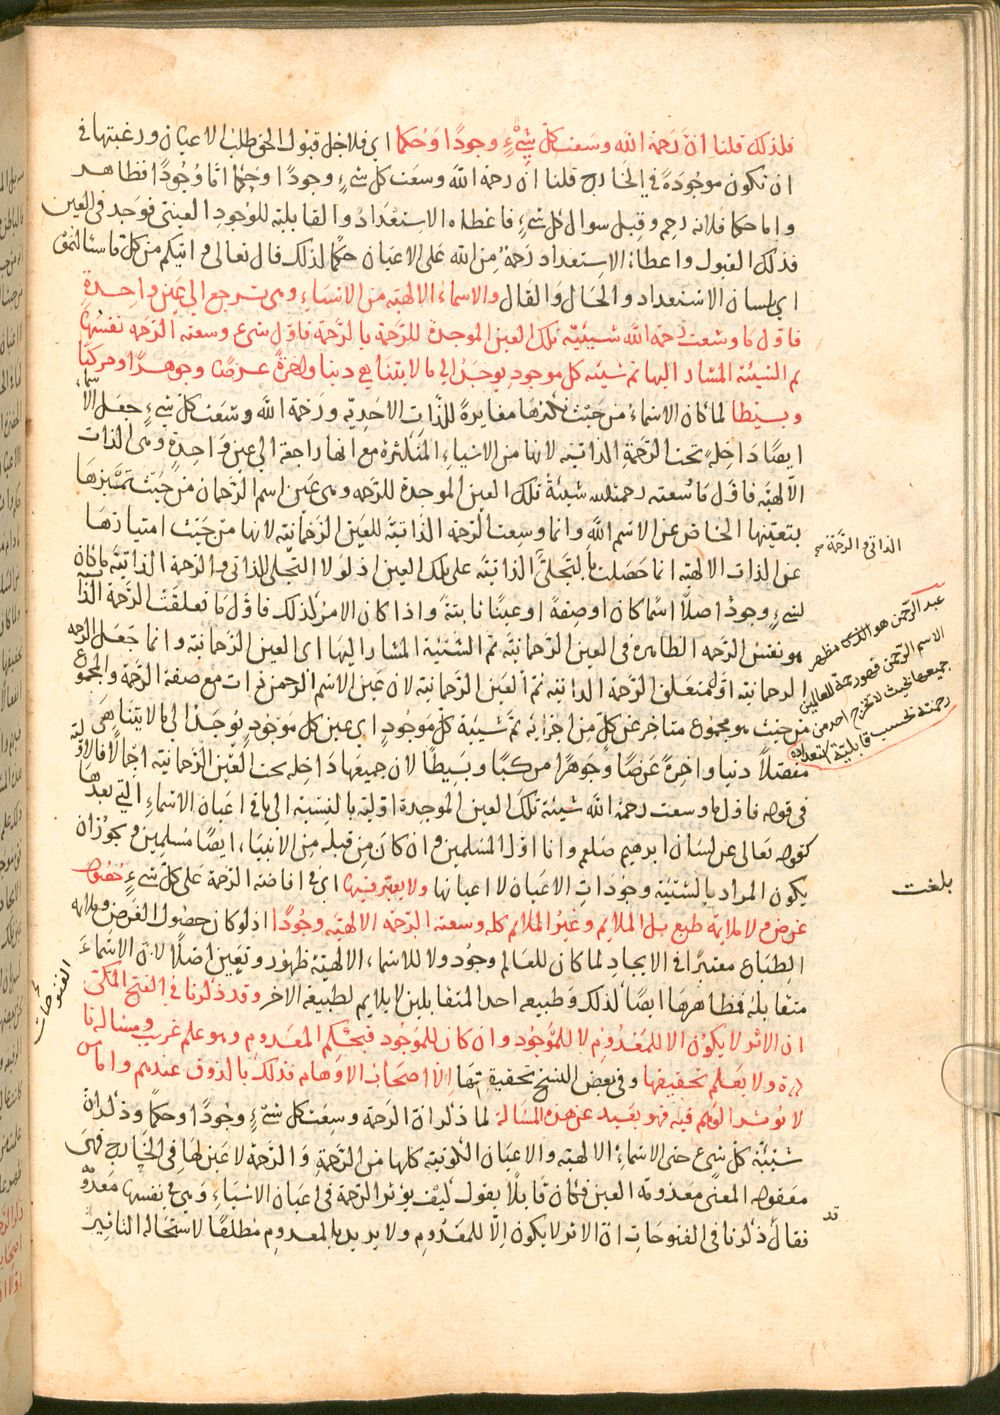 فلذلك قلنا ان رحمة الله وسعت كل شيءٍ وجودًا وحكما اي فلاجل قبول الحق طلب الاعيان ورغبتها في
ان تكون موجودة في الخارج قلنا ان رحمة الله وسعت كل شيءٍ وجودًا وحكما اما وجودًا فظاهر
واما حكما فلانه رحم وقبل سوال كل شيءٍ فاعطاه الاستعداد والقابلية للوجود العيني فوجد في العين
فذلك القبول واعطاء الاستعداد رحمة من الله على الاعيان حكمًا لذلك قال تعالى واتيكم من كل ما سالتموه
اي بلسان الاستعداد والحال والقال والاسماء الالهية من الاشياء وهي ترجع الى عين واحدةٍ
فاول ما وسعت رحمة الله شيئية تلك العين الموجدة للرحمة بالرحمة فاول شيء وسعته الرحمة نفسها
ثم الشيئية المشار اليها ثم شيئية كل موجود يوجد الى ما لا يتناهى دينا واخرةً عرضًا وجوهرًا ومركبًا
وبسيطا لما كان الاسماء من حيث تكثرها مغايرة للذات الاحدية ورحمة الله وسعت كل شيءٍ جعل الاسماء
ايضًا داخلة تحت الرحمة الذاتية لانها من الاشياء المتكثرة مع انها راجعة الى عين واحدةٍ وهي الذات
الالهية فاول ما وسعته رحمة الله شيئية تلك العين الموجدة للرحمة وهي عين اسم الرحمان من حيث تميزها
بتعينها الخاص عن الاسم الله وانما وسعت الرحمة الذاتية للعين الرحمانية لانها من حيث امتيازها
عن الذات الالهية انما حصلت بالتجلى الذاتية على تلك العين اذ لولا التجلى الذاتي والرحمة الذاتية ما كان
لشيءٍ وجود اصلًا اسما كان او صفة او عينًا ثابتة واذا كان الامر كذلك فاول ما تعلقت الرحمة الذا
هو نفس الرحمة الظاهرة في العين الرحمانية ثم الشيئية المشار اليها اي العين الرحمانية وانما جعل الرحمة
الرحمانية اول متعلق الرحمة الذاتية ثم العين الرحمانية لان عين الاسم الرحمن ذات مع صفة الرحمة والمجموع
من حيث هو مجموع متاخر عن كل من اجزائه ثم شيئية كل موجودٍ اي عين كل موجود يوجد الى ما لا يتناهى
مفصلًا دنيا واخرةً عرضًا وجوهرًا مركبًا وبسيطًا لان جميعها داخلة تحت العين الرحمانية اجمالًا فالاولية
في قوله فاول ما وسعت رحمة الله شيئية تلك العين الموجدة اولية بالنسبة الى باقي اعيان الاسماء التي بعدها
كقوله تعالى عن لسان ابرهيم صلعم وانا اول المسلمين وان كان من قبله من الانبياء ايضًا مسلمين ويجوز ان
يكون المراد بالشيئية وجودات الاعيان لا اعيانها ولا يعتبر فيها اي في افاضة الرحمة على كل شيءٍ حصول
غرض ولا ملايمة طبع بل الملايم وغير الملايم كله وسعته الرحمة الالهية وجودًا اذ لو كان حصول الغرض وملايمة
الطباع معتبرًا في الايجاد لما كان للعالم وجود ولا للاسماء الالهية ظهور وتعين اصلًا لان الاسماء
متقابلة فمظاهرها ايضًا كذلك وطبيعة احد المتقابلين لا يلايم لطبيعة الاخر وقد ذكرنا في الفتح المكي
ان الاثر لا يكون الا للمعدوم لا للموجود وان كان للموجود فبحكم المعدوم وهو علم غريب ومسالة نا
درة ولا يعلم تحقيقها وفي بعض النسخ تحقيقتها الا اصحاب الاوهام فذلك بالذوق عندهم واما من
لا يوثر الوهم فيه فهو بعيد عن هذه المسالة لما ذكر ان الرحمة وسعت كل شيءٍ وجودًا وحكمًا وذكر ان
شيئية كل شيء حتى الاسماء الالهية والاعيان الكونية كلها من الرحمة والرحمة لا عين لها في الخارج فهي
معقولة المعنى معدومة العين فكان قايلًا يقول كيف يؤثر الرحمة في اعيان الاشياء وهي في نفسها معدومة
فقال ذكرنا في الفتوحات ان الاثر لا يكون الا للمعدوم ولا يريد بالمعدوم مطلقًا لاستحالة التاثير
الذاتي والرحمة صح
عبد الرحمن هو الذي مظهر
الاسم الرحمن فهو رحمة للعالمين
جميعها بحيث لا يخرج احد من
رحمته بحسب قابلية استعداده
بلغت
الفتوحات
قد